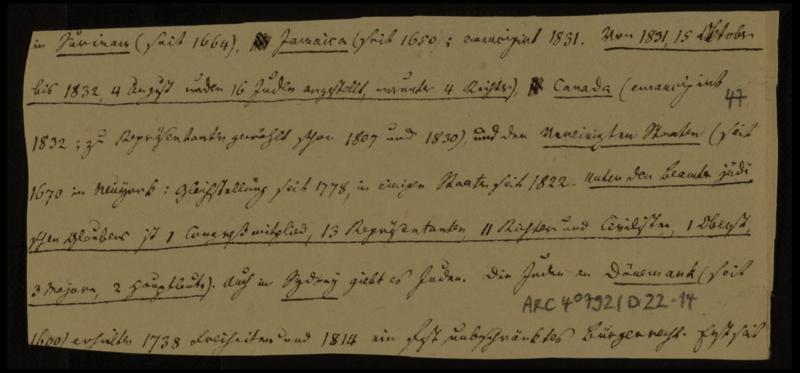 in Surinam (seit 1664), Jamaica (seit 1650; emancipirt 1831. Von 1831, 15 Oktober
bis 1832, 4 August wurden 16 Juden angestellt, worunter 4 Richter), Canada (emancipirt
47
1832; zu Repräsentanten gewählt schon 1807 und 1830), und den Vereinigten Staaten (seit
1670 in Neuyork: Gleichstellung seit 1778, in einigen Staaten seit 1822. Unter den Beamten jüdi
schen Glaubens ist 1 Congreßmitglied, 13 Repräsentanten, 11 Richter und Civilisten, 1 Oberst,
3 Majore, 2 Hauptleute). Auch in Sydney giebt es Juden. Die Juden in Dänemark (seit
ARC 4° 792/D22-14
1600) erhielten 1738 Freiheiten und 1814 ein fast unbeschränktes Bürgerrecht. Erst seit